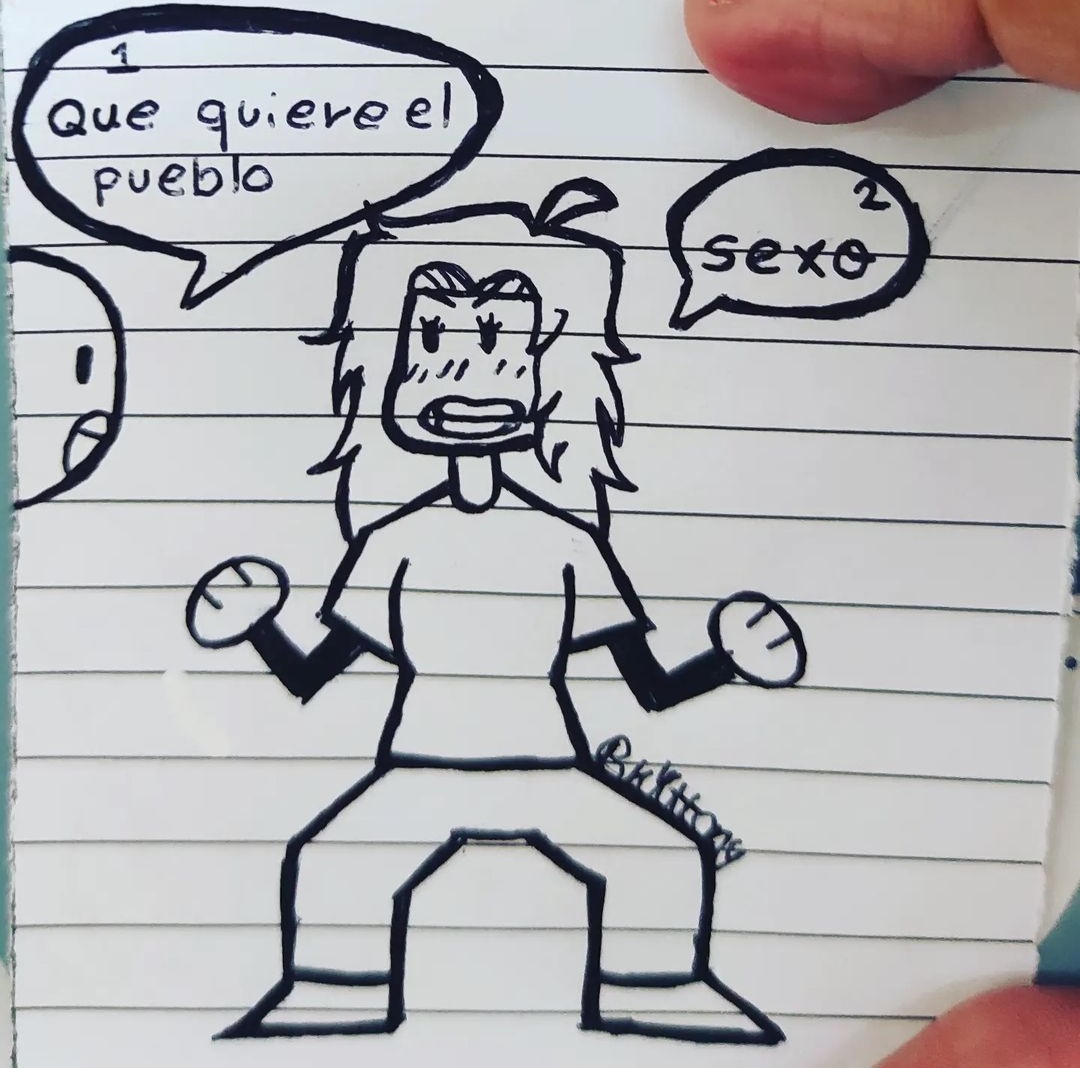 1
Que quiere el
pueblo
2
sexo